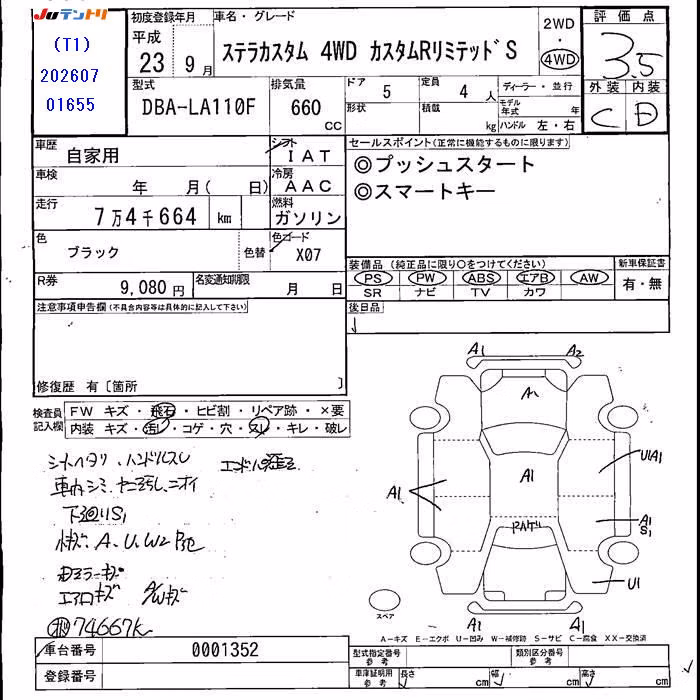 JUテントリ
(T1)
202607
01655
初度登録年月
平成
23 9月
車名・グレード
ステラカスタム 4WD カスタムRリミテッド S
2WD
・
4WD
評価点
3.5
外装 内装
C D
型式
DBA-LA110F
排気量
660
CC
ドア 5
形状
定員 4人
積載 kg
ディーラー・並行
モデル年式 年
ハンドル 左・右
車歴 自家用
シフト IAT
車検 年 月( 日)
冷房 AAC
走行 7万4千664 km
燃料 ガソリン
色 ブラック
色替
色コード X07
R券 9,080円
名変通知期限 月 日
セールスポイント(正常に機能するものに限ります)
◎プッシュスタート
◎スマートキー
装備品(純正品に限り○をつけてください)
PS PW ABS エアB AW
SR ナビ TV カワ
新車保証書
有・無
後日品
注意事項申告欄(不具合内容等は具体的に記入して下さい)
修復歴 有〔箇所 〕
検査員記入欄
FW キズ・飛石・ヒビ割・リペア跡・×要
内装 キズ・汚レ・コゲ・穴・スレ・キレ・破レ
シートヘタリ、ハンドルスレ
車内シミ、ヤニ汚レ、ニオイ
下廻りS1
小キズ A、U、W2
ミラーキズ
エアロキズ A/Wキズ
74667k
A1 A2
A
A1
U1A1
A1
A1
S1
U1
A1 A1
スペア
A-キズ E-エクボ U-凹み W-補修跡 S-サビ C-腐食 XX-交換済
車台番号 0001352
登録番号
型式指定番号 参考
類別区分番号 参考
車庫証明用 参考
長さ cm 幅 cm 高さ cm